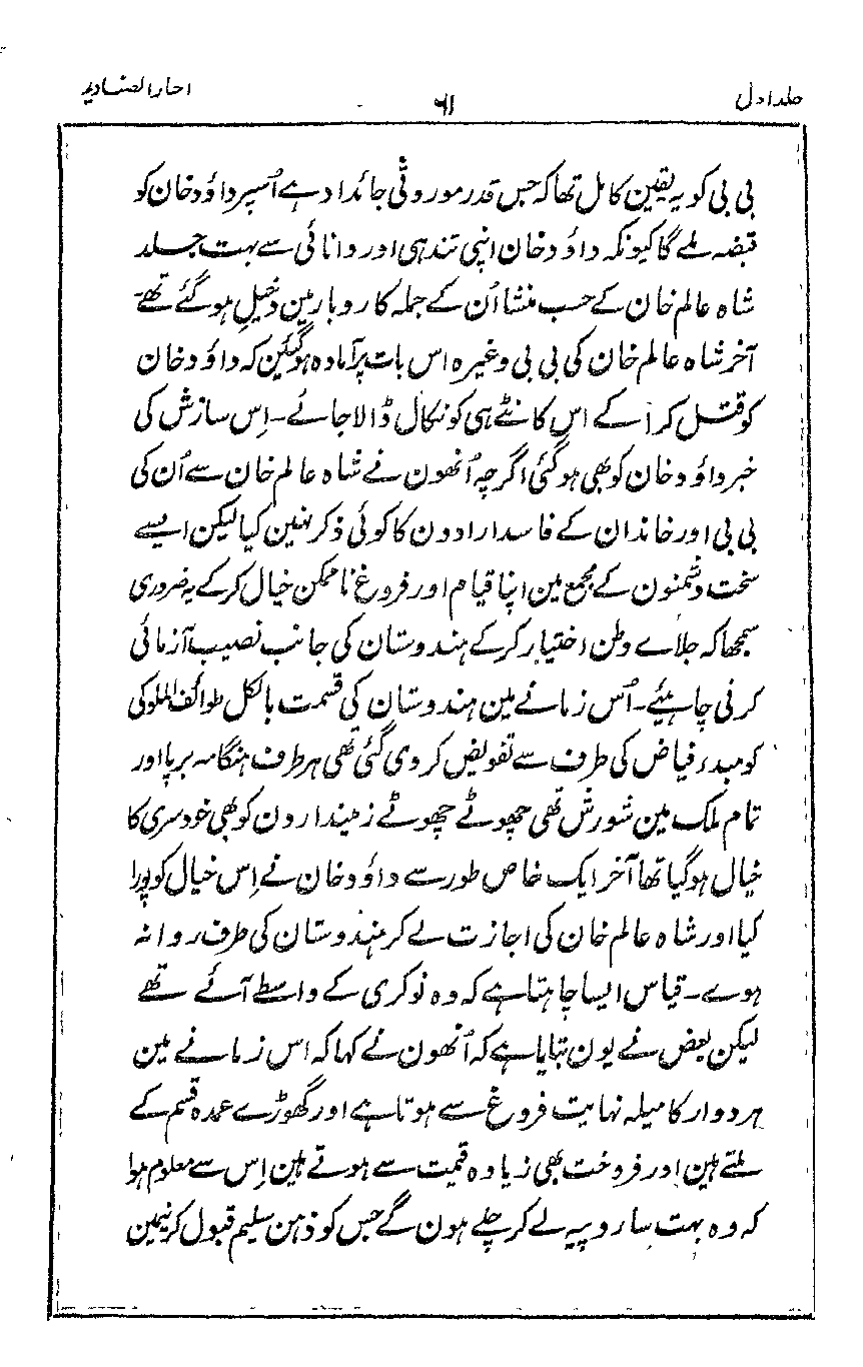 جلد اول
۶۱
اخبار الصنادید
بی بی کو یہ یقین کامل تھا کہ جس قدر موروثی جائداد ہے اُسپر داؤد خان کو
قبضہ ملے گا کیونکہ داؤد خان اپنی تندہی اور دانائی سے بہت جلد
شاہ عالم خان کے حسب منشا اُن کے جملہ کاروبار مین دخیل ہو گئے تھے
آخر شاہ عالم خان کی بی بی وغیرہ اس بات پر آمادہ ہوگئین کہ داؤد خان
کو قتل کرا کے اس کانٹے ہی کو نکال ڈالا جائے۔ اِس سازش کی
خبر داؤد خان کو بھی ہو گئی اگرچہ اُنھون نے شاہ عالم خان سے اُن کی
بی بی اور خاندان کے فاسد ارادون کا کوئی ذکر نہین کیا لیکن ایسے
سخت دشمنون کے مجمع مین اپنا قیام اور فروغ ناممکن خیال کر کے یہ ضروری
سمجھا کہ جلاے وطن اختیار کر کے ہندوستان کی جانب نصیب آزمائی
کرنی چاہیئے۔ اُس زمانے مین ہندوستان کی قسمت بالکل طوائف الملوکی
کو مبدء فیاض کی طرف سے تفویض کر دی گئی تھی ہر طرف ہنگامہ برپا اور
تمام ملک مین شورش تھی چھوٹے چھوٹے زمیندارون کو بھی خودسری کا
خیال ہو گیا تھا آخر ایک خاص طور سے داؤد خان نے اِس خیال کو پورا
کیا اور شاہ عالم خان کی اجازت لے کر ہندوستان کی طرف روانہ
ہوے۔ قیاس ایسا چاہتا ہے کہ وہ نوکری کے واسطے آئے تھے
لیکن بعض نے یون بتایا ہے کہ اُنھون نے کہا کہ اس زمانے مین
ہردوار کا میلہ نہایت فروغ سے ہوتا ہے اور گھوڑے عمدہ قسم کے
ملتے ہین اور فروخت بھی زیادہ قیمت سے ہوتے ہین اِس سے معلوم ہوا
کہ وہ بہت سا روپیہ لے کر چلے ہون گے جس کو ذہن سلیم قبول کرنیمین